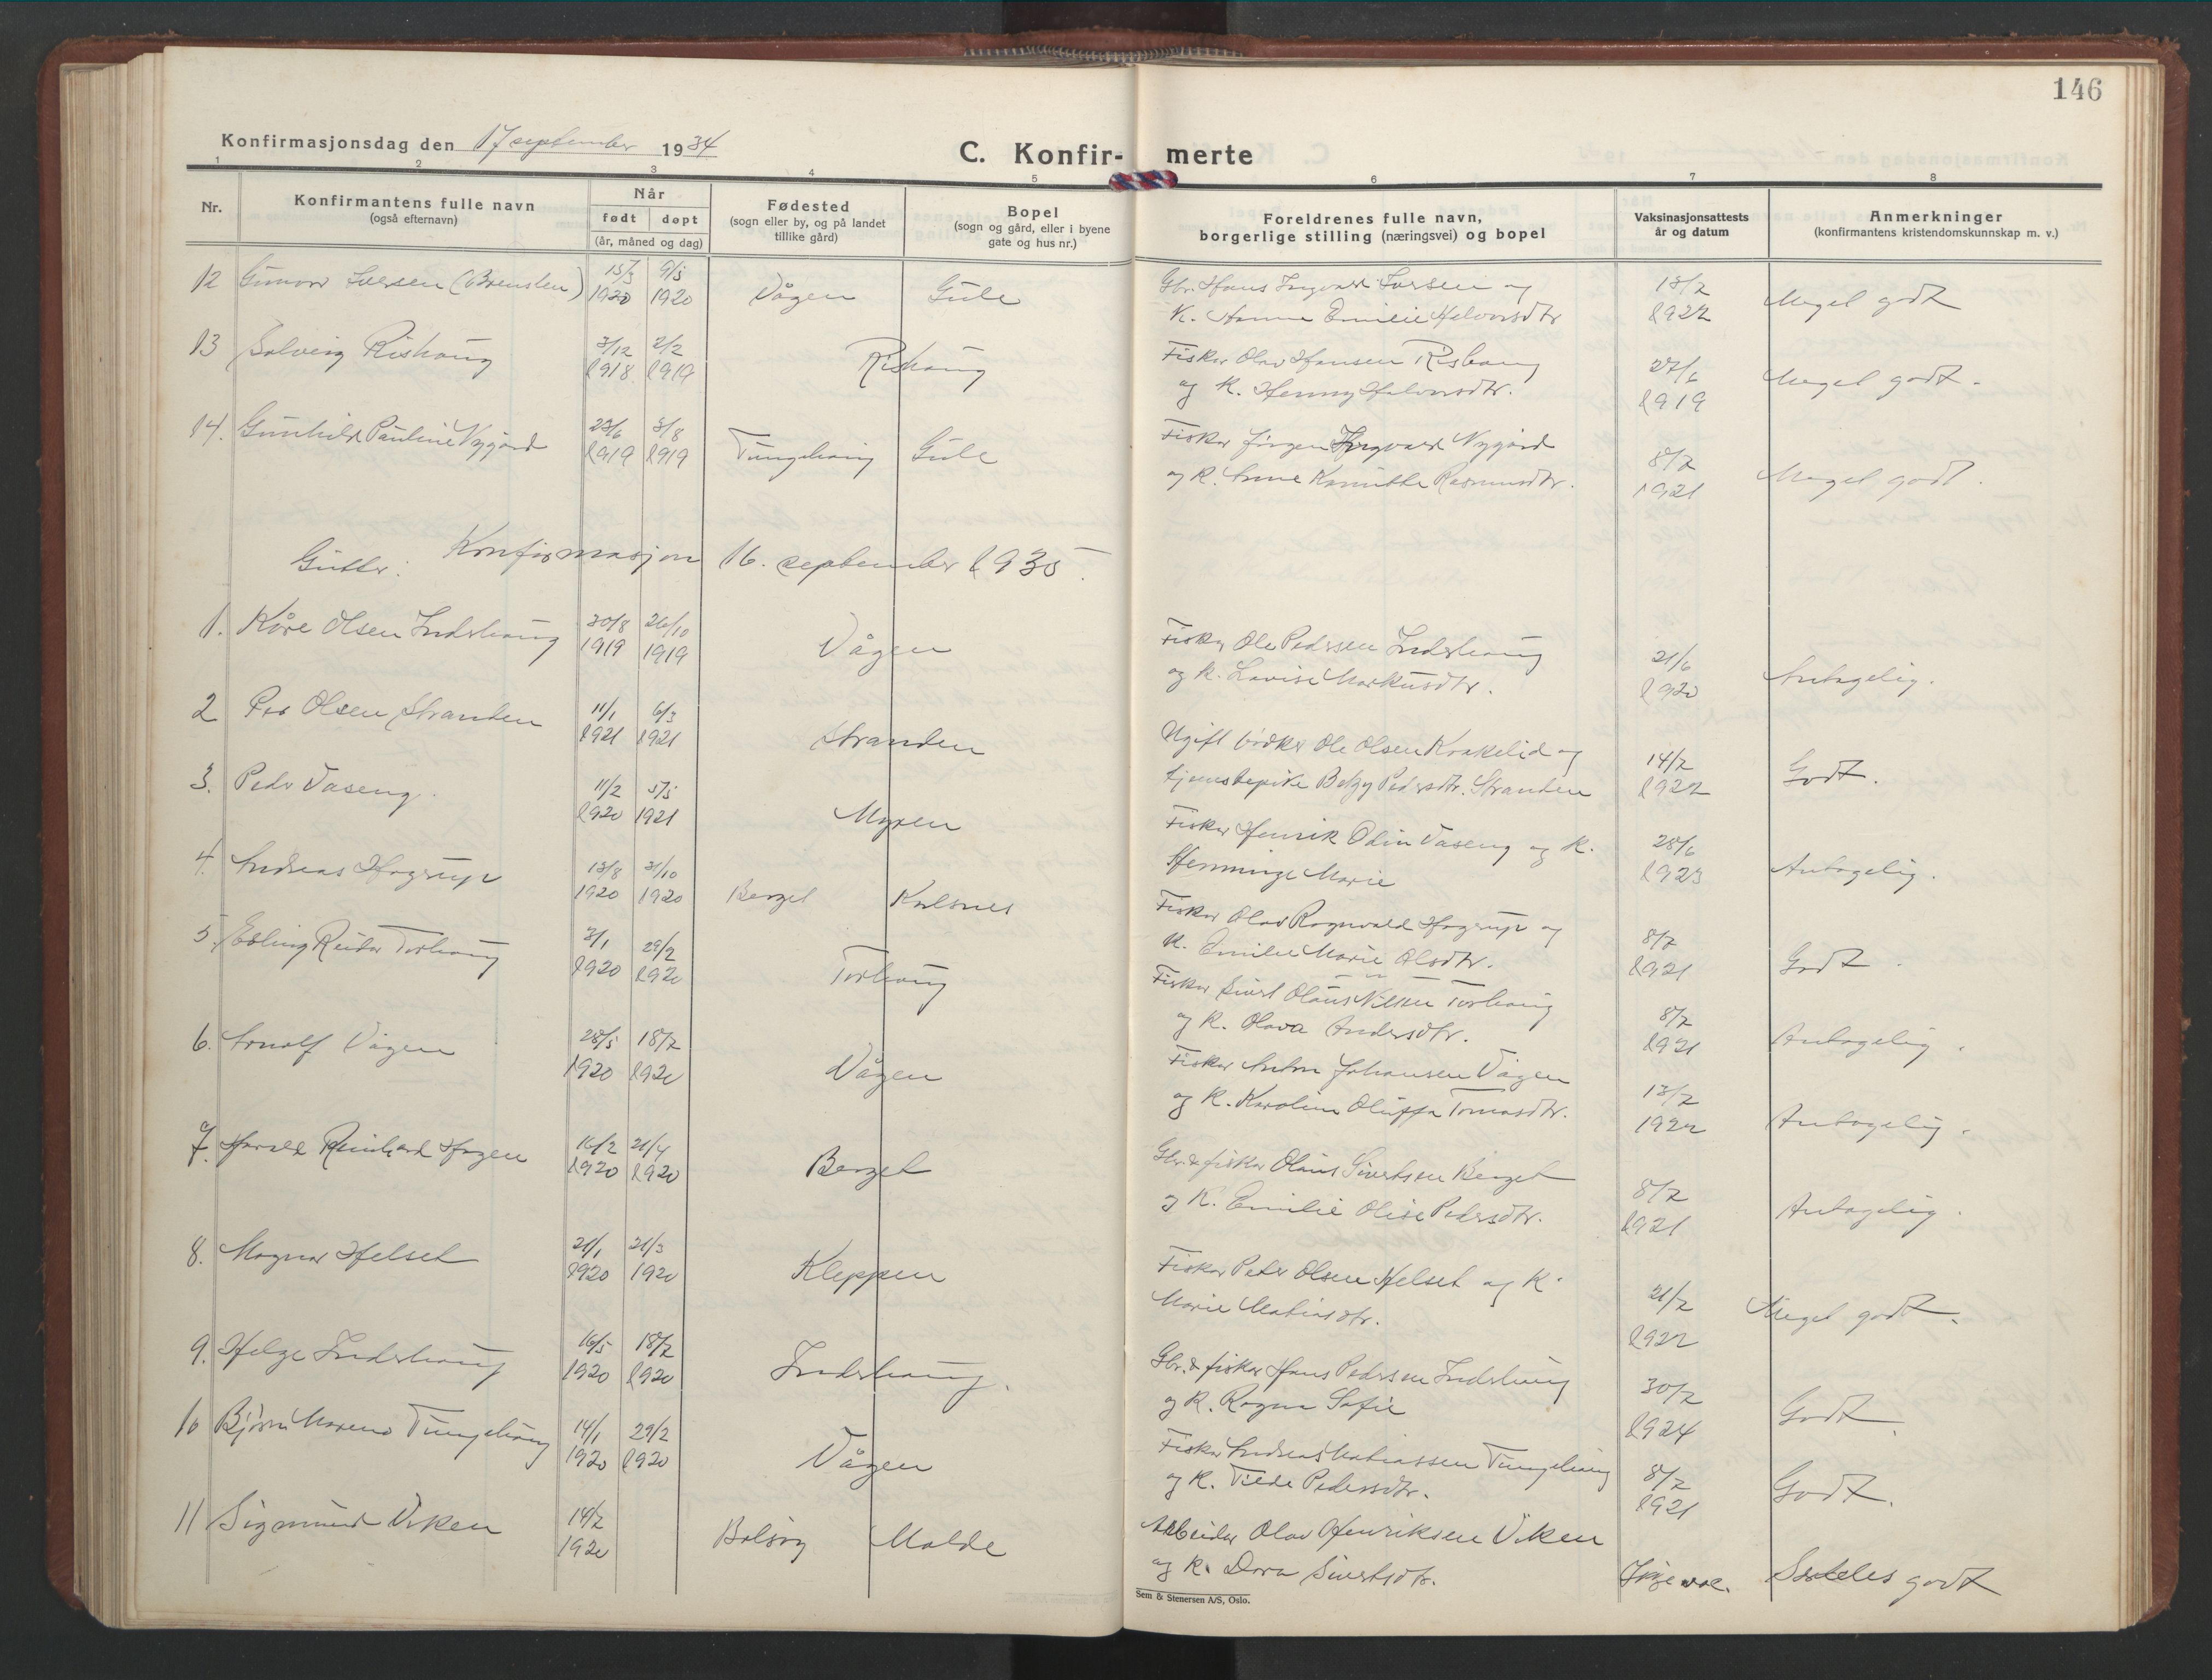 146
Konfirmasjonsdag den 17 september 1934
C. Konfir- merte
1 2 3 4 5 6 7 8
Nr.
Konfirmantens fulle navn
(også efternavn)
Når
født døpt
(år, måned og dag)
Fødested
(sogn eller by, og på landet
tillike gård)
Bopel
(sogn og gård, eller i byene
gate og hus nr.)
Foreldrenes fulle navn,
borgerlige stilling (næringsvei) og bopel
Vaksinasjonsattests
år og datum
Anmerkninger
(konfirmantens kristendomskunnskap m. v.)
12 Gunvor Iversen 9/5 Vågen Gule Gbr. Hans Ingvald Iversen og 13/7 Meget godt
1920 1920 K. Anna Emilie Halvorsdtr 1922
13 Solveig Rishaug 3/12 2/2 Rishaug Fisker Olav Hansen Rishaug 27/6 Meget godt.
1918 1919 og K. Henny Halvorsdtr. 1919
14. Gunhild Pauline Nygård 23/6 3/8 Tungehaug Gule Fisker Jørgen Ingvald Nygård 8/7 Meget godt.
1919 1919 og K. Anne Kamille Rasmusdtr. 1921
Konfirmasjon 16. september 1935.
Gutter:
1. Kåre Olsen Inderhaug 30/8 26/10 Vågen Fisker Ole Pedersen Inderhaug 21/6 Antagelig.
1919 1919 og K. Lovise Markusdtr. 1920
2 Per Olsen Stranden 11/1 6/3 Stranden Ugift bødker Ole Olsen Krakelid og 14/7 Godt.
1921 1921 tjenestepike Betzy Pedersdtr. Stranden 1922
3. Peder Vaseng. 11/2 5/5 Myren Fisker Henrik Odin Vaseng og K. 28/6 Antagelig.
1920 1921 Hemmingе Marie 1923
4. Andreas Hagrup 13/8 31/10 Berget Karlsnes Fisker Olav Ragnvald Hagrup og 8/7 Godt.
1920 1920 K. Emilie Marie Olsdtr. 1921
5. Erling Reidar Torhaug 3/1 29/2 Torhaug Fisker Sivert Olaus Nilsen Torhaug 8/7 Antagelig.
1920 1920 og K. Olava Andersdtr. 1921
6. Arnolf Vågen 28/5 18/7 Vågen Fisker Anton Johansen Vågen 13/7 Antagelig.
1920 1920 og K. Karoline Oluffa Tomasdtr. 1922
7. Harald Reinhard Hagen 16/2 21/4 Berget Gbr. & fisker Olaus Sivertsen Berget 8/7 Antagelig.
1920 1920 og K. Emilie Olise Pedersdtr. 1921
8. Magnar Helset 21/1 21/3 Kleppen Fisker Peter Olsen Helset og K. 21/7 Meget godt.
1920 1920 Marie Matiasdtr. 1922
9. Helge Inderhaug 16/5 18/7 Inderhaug. Gbr. & fisker Hans Pedersen Inderhaug 30/7 Godt.
1920 1920 og K. Ragna Sofie 1924
10 Bjørn Tungehaug 14/1 29/2 Vågen Fisker Andreas Matiassen Tungehaug 8/7 Godt.
1920 1920 og K. Tilda Pedersdtr. 1921
11 Sigmund Viken 14/7 Bolsøy Molde Arbeider Olav Henriksen Viken Ikke vac. Særdeles godt
1920 og K. Dora Sivertsdtr.
Sem & Stenersen A/S, Oslo.